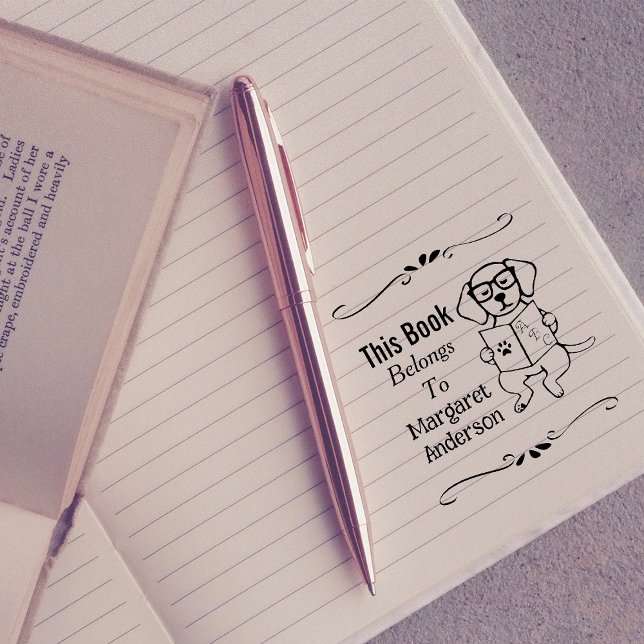 be of
ld. Ladies
it's account of her
night at the ball I wore a
crape, embroidered and heavily
This Book
Belongs
To
Margaret
Anderson
A
B
C